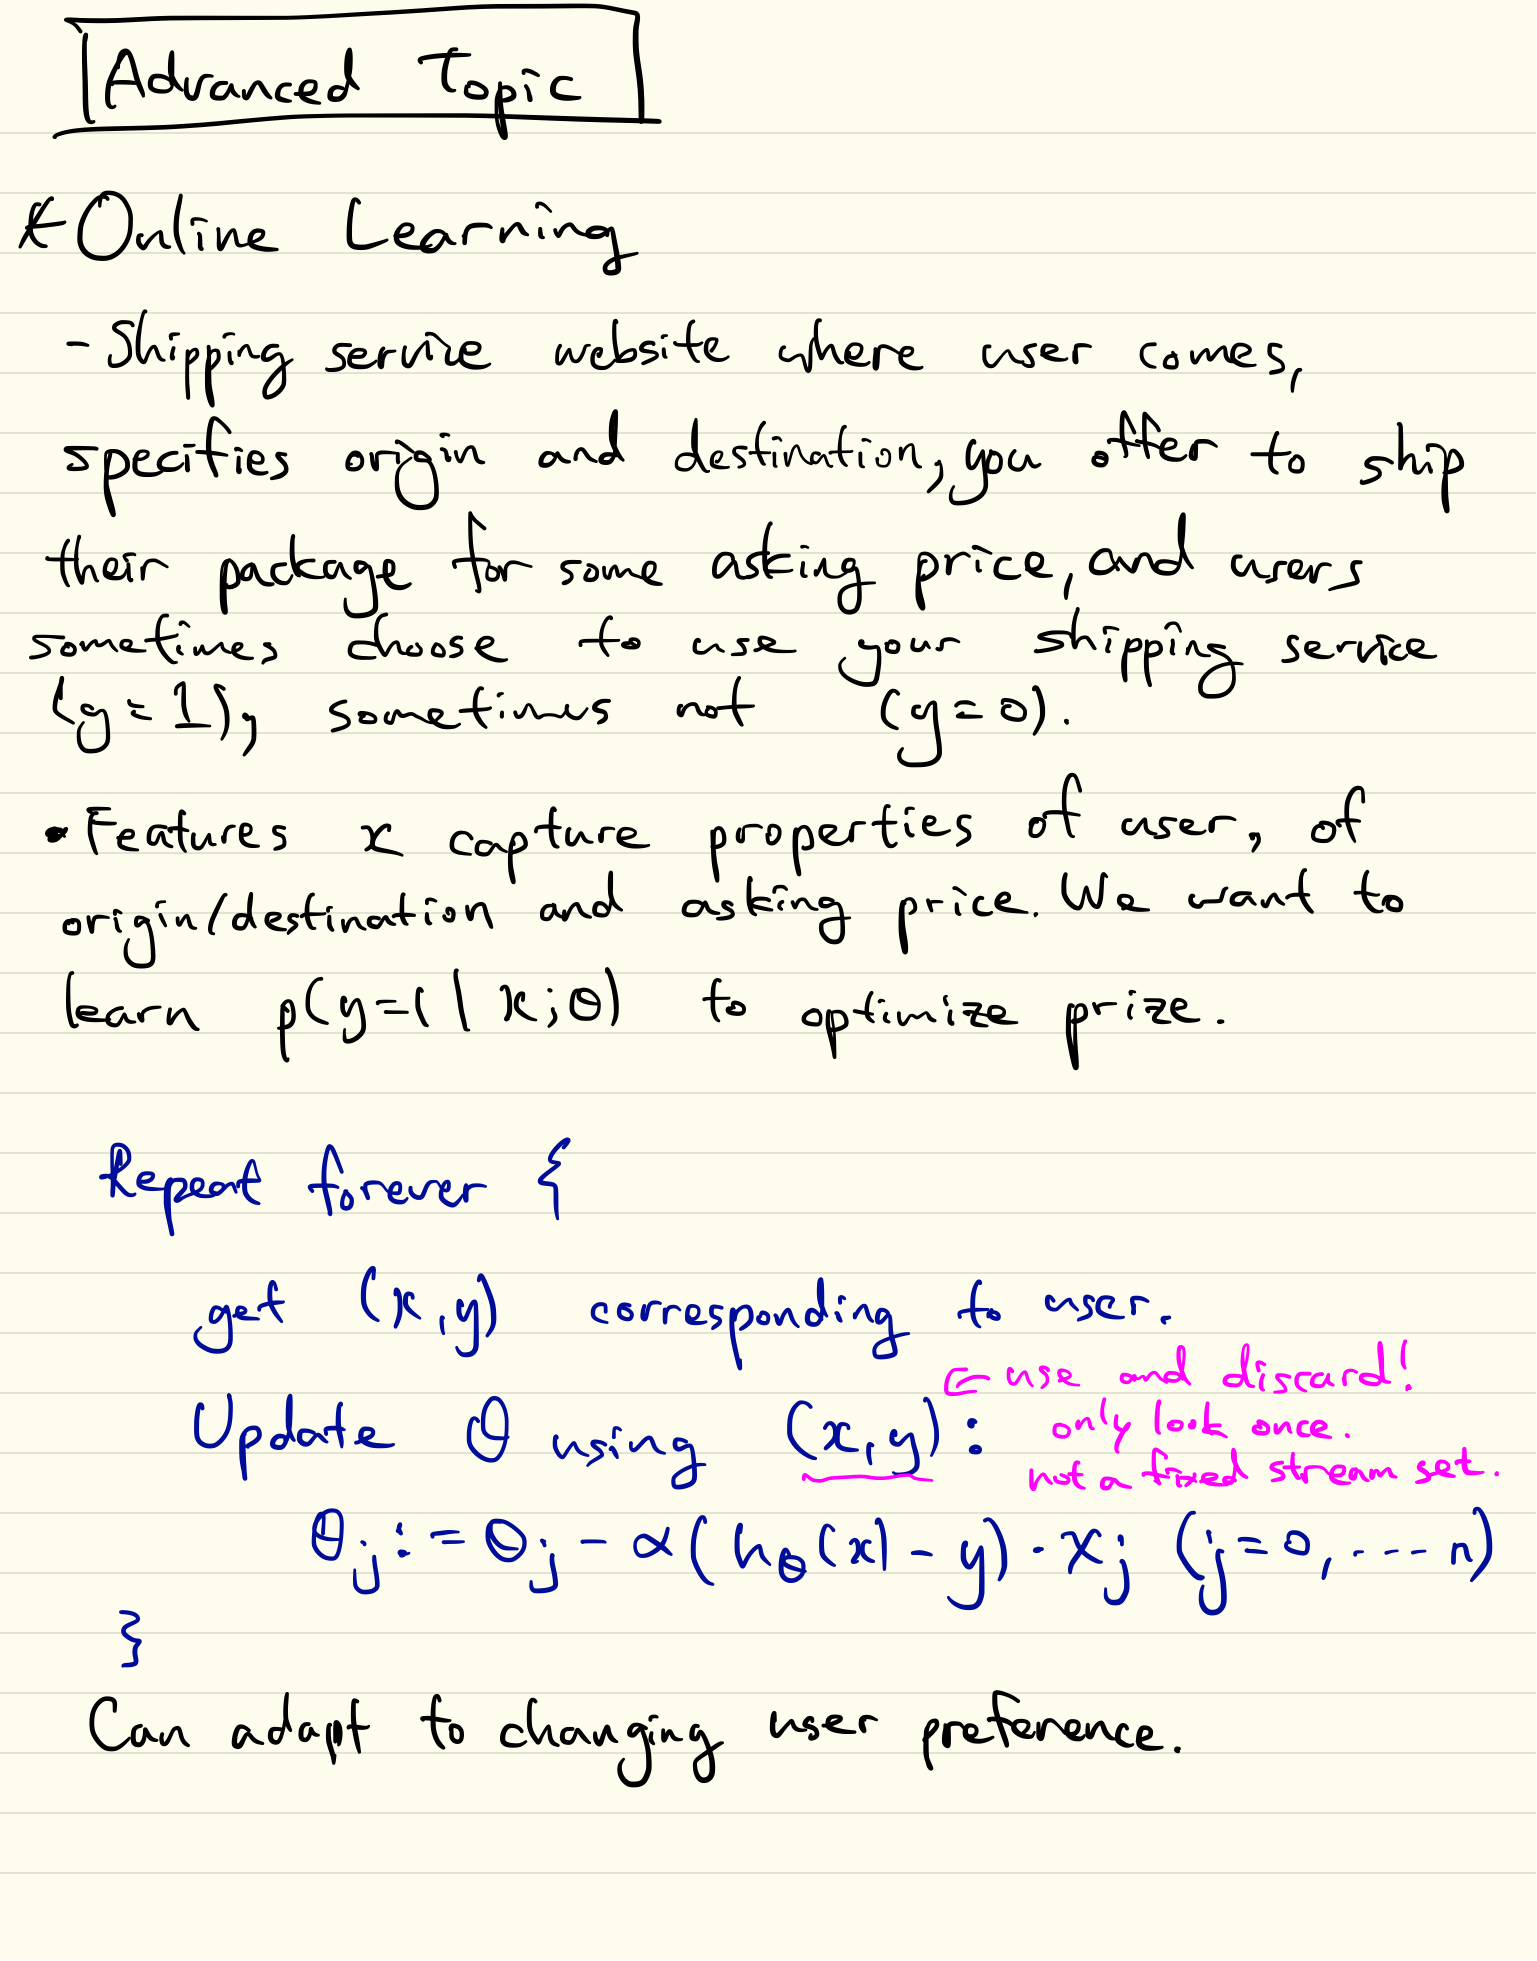 Advanced Topic
* Online Learning
- Shipping service website where user comes,
specifies origin and destination, you offer to ship
their package for some asking price, and users
sometimes choose to use your shipping service
(y=1), sometimes not (y=0).
• Features x capture properties of user, of
origin/destination and asking price. We want to
learn p(y=1 | x;θ) to optimize prize.
Repeat forever {
get (x,y) corresponding to user.
← use and discard!
Update θ using (x,y):
only look once.
not a fixed stream set.
θj := θj - α(hθ(x) - y) · xj (j=0,.... n)
}
Can adapt to changing user preference.